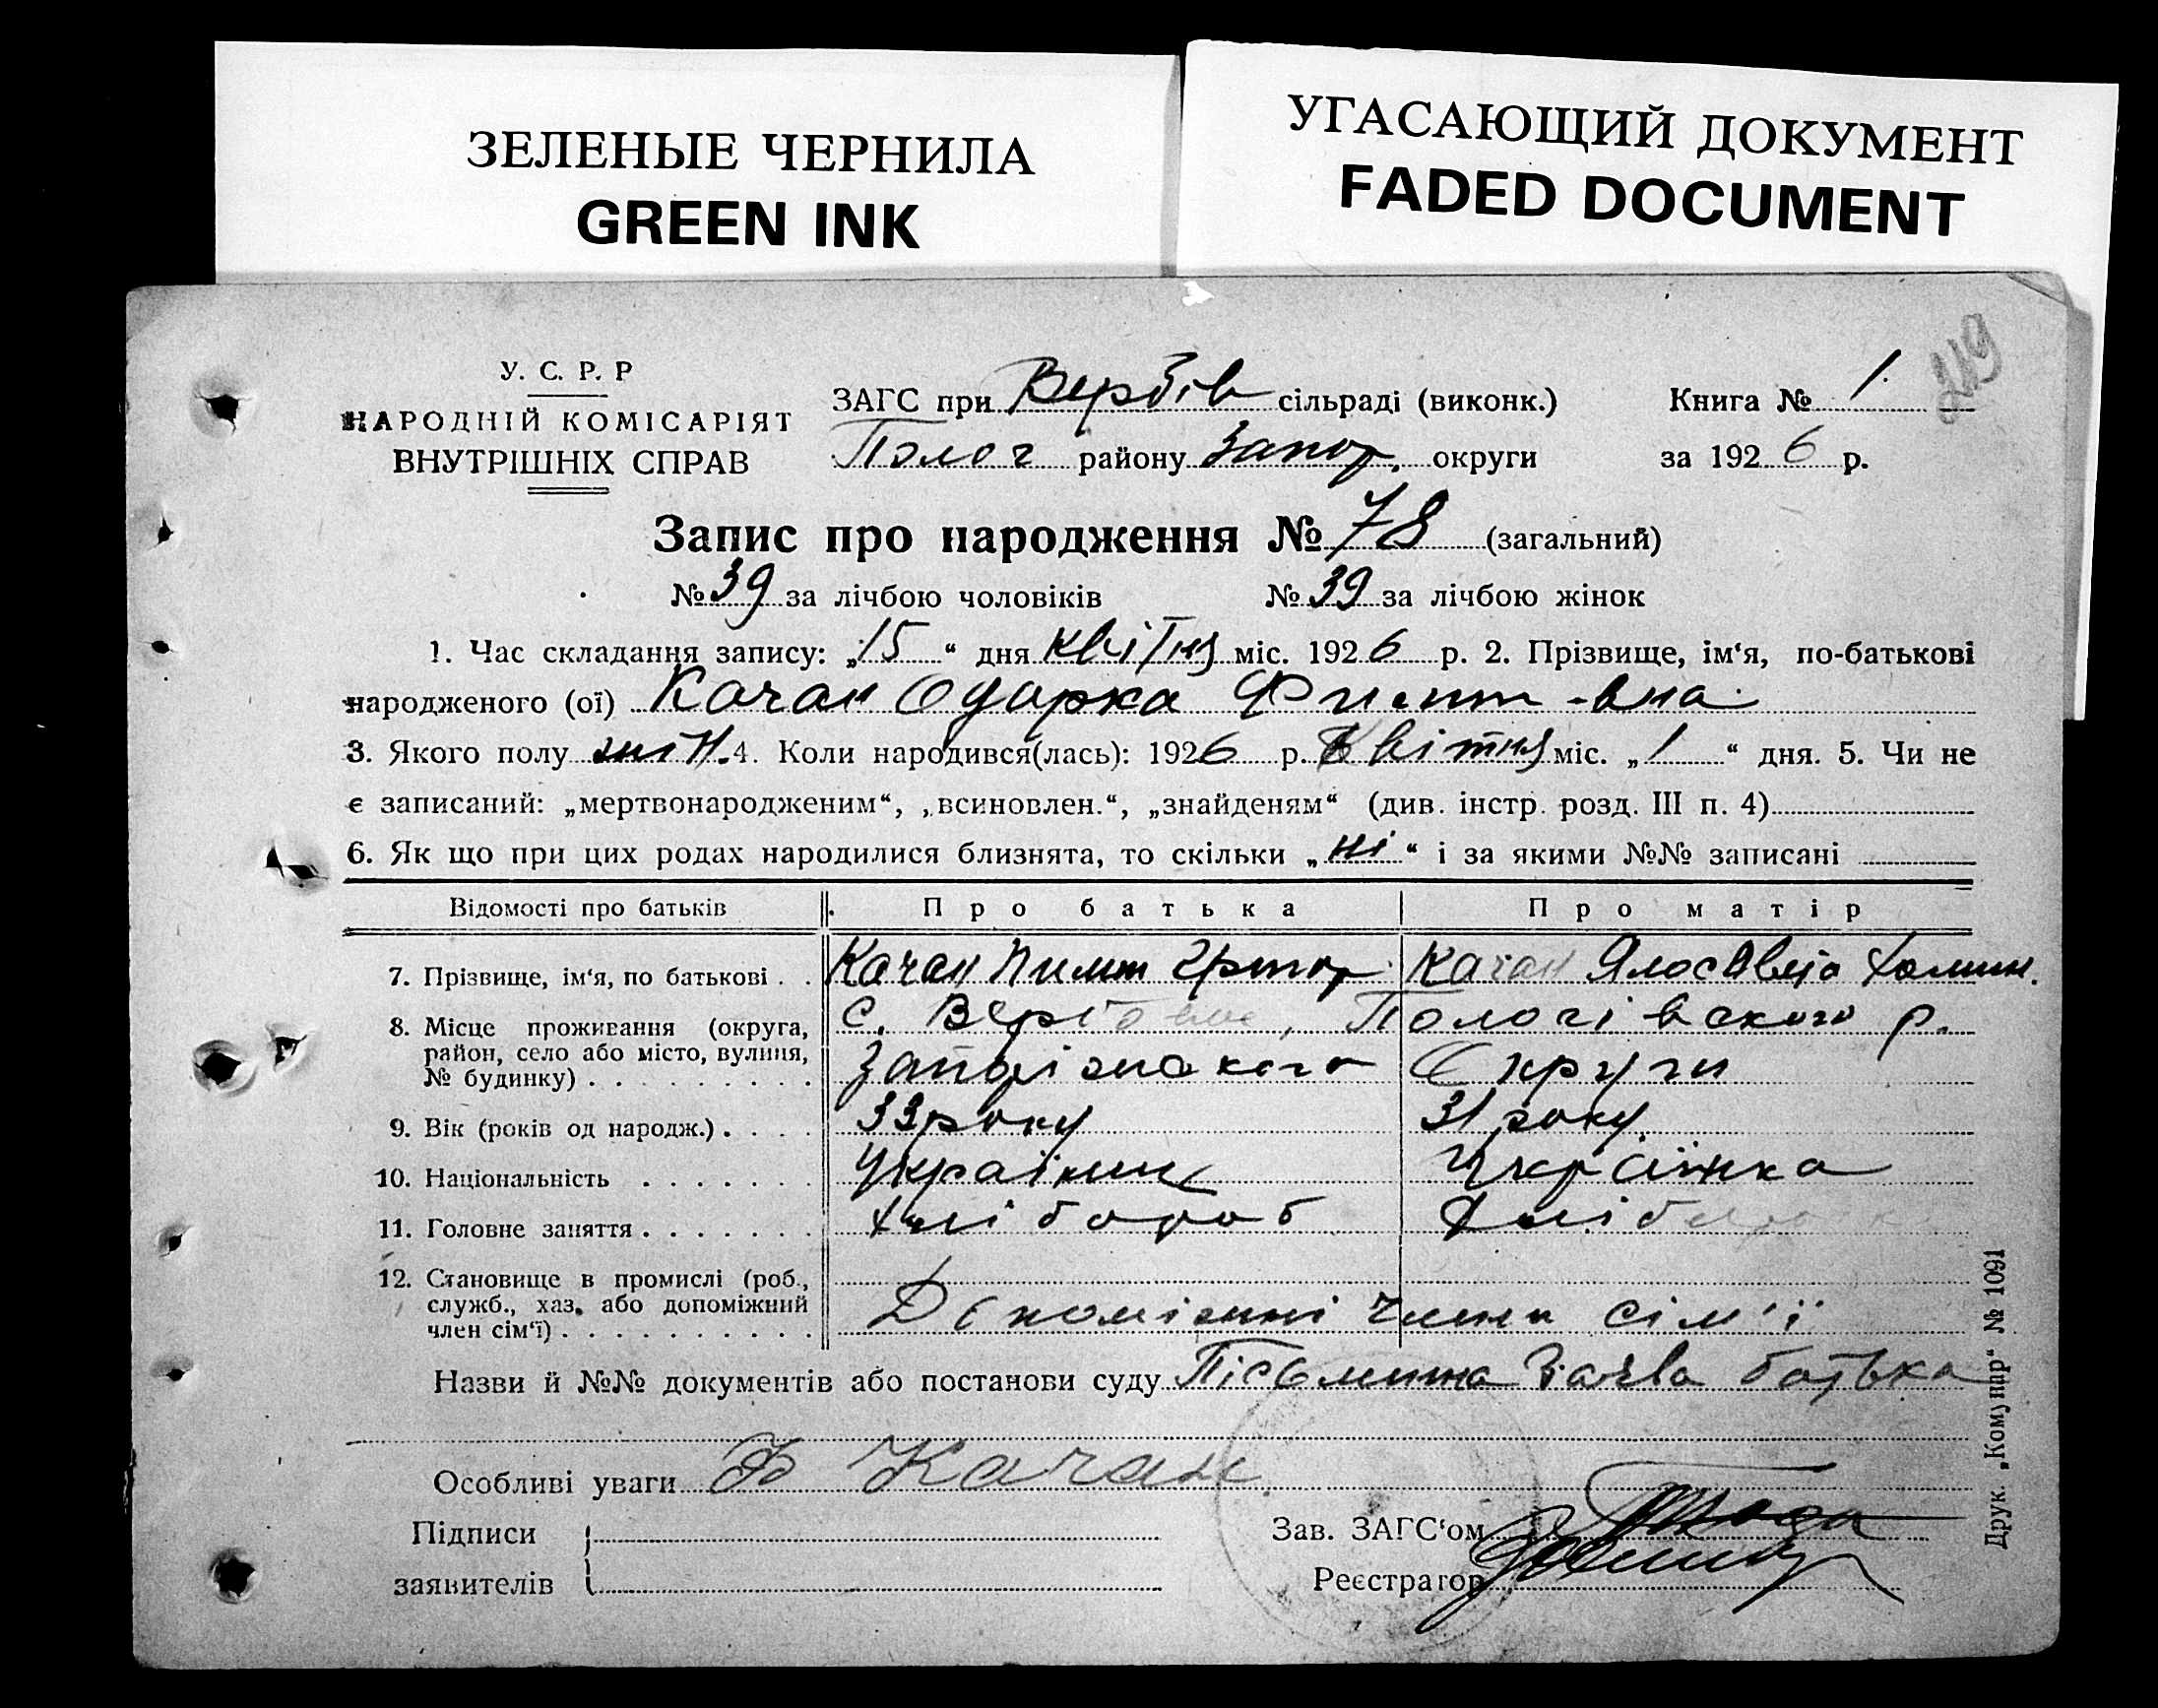 ЗЕЛЕНЫЕ ЧЕРНИЛА
GREEN INK
УГАСАЮЩИЙ ДОКУМЕНТ
FADED DOCUMENT
219
У. С. Р. Р
НАРОДНІЙ КОМІСАРІЯТ
ВНУТРІШНІХ СПРАВ
ЗАГС при Вербів сільраді (виконк.)
Полог району Запор. округи
Книга № 1.
за 1926 р.
Запис про народження № 78 (загальний)
№ 39 за лічбою чоловіків № 39 за лічбою жінок
1. Час складання запису: „15“ дня квітня міс. 1926 р. 2. Прізвище, ім‘я, по-батькові
народженого (ої) Качан Одарка -вна
3. Якого полу жін. 4. Коли народився(лась): 1926 р. Квітня міс. „1“ дня. 5. Чи не
є записаний: „мертвонародженим“, „всиновлен.“, „знайденям“ (див. інстр. розд. III п. 4)
6. Як що при цих родах народилися близнята, то скільки „ні“ і за якими №№ записані
Відомості про батьків Про батька Про матір
7. Прізвище, ім‘я, по батькові . . Качан Качан
8. Місце проживання (округа, с. , Пологівського р.
район, село або місто, вулиця, Запорізького Округи
№ будинку) . . . . . . . . .
9. Вік (років од народж.) . . . . 33 року 31 року
10. Національність . . . . . . . Українец Українка
11. Головне заняття . . . . . . . хлібороб
12. Становище в промислі (роб.,
служб., хаз. або допоміжний члени сім'ї
член сім‘ї) . . . . . . . . . . .
Назви й №№ документів або постанови суду Пісьменна Заява батька
Особливі уваги Качан
Підписи
заявителів
Зав. ЗАГС‘ом
Реєстратор
Друк. „Комунар“ № 1091